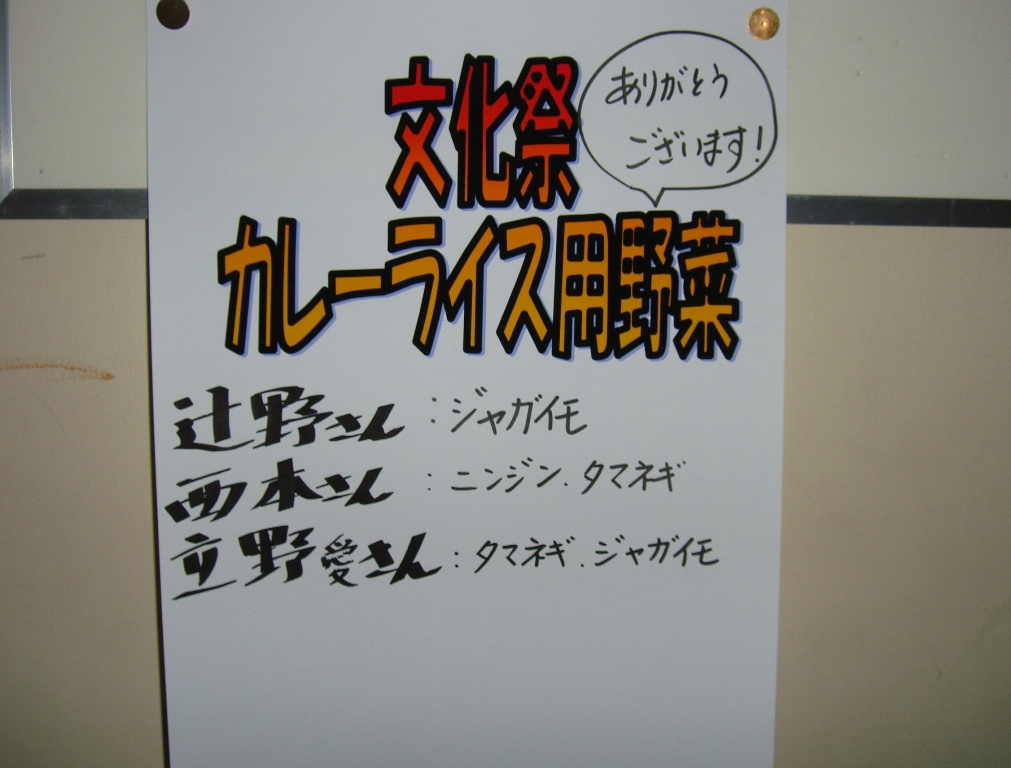 文化祭
ありがとう
ございます!
カレーライス用野菜
辻野さん:ジャガイモ
西本さん:ニンジン.タマネギ
立野愛さん:タマネギ.ジャガイモ